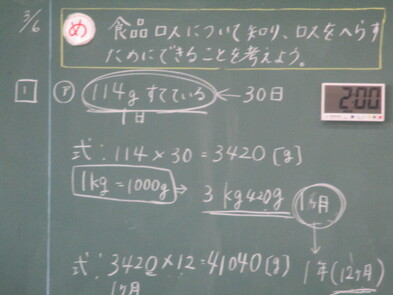 3/6
め 食品ロスについて知り、ロスをへらす
ためにできることを考えよう。
1 ア 114g すてている ← 30日
1日
2:00
式:114×30=3420[g]
1kg=1000g → 3kg420g 1ヶ月
式:3420×12=41040[g] 1年(12ヶ月)
1ヶ月